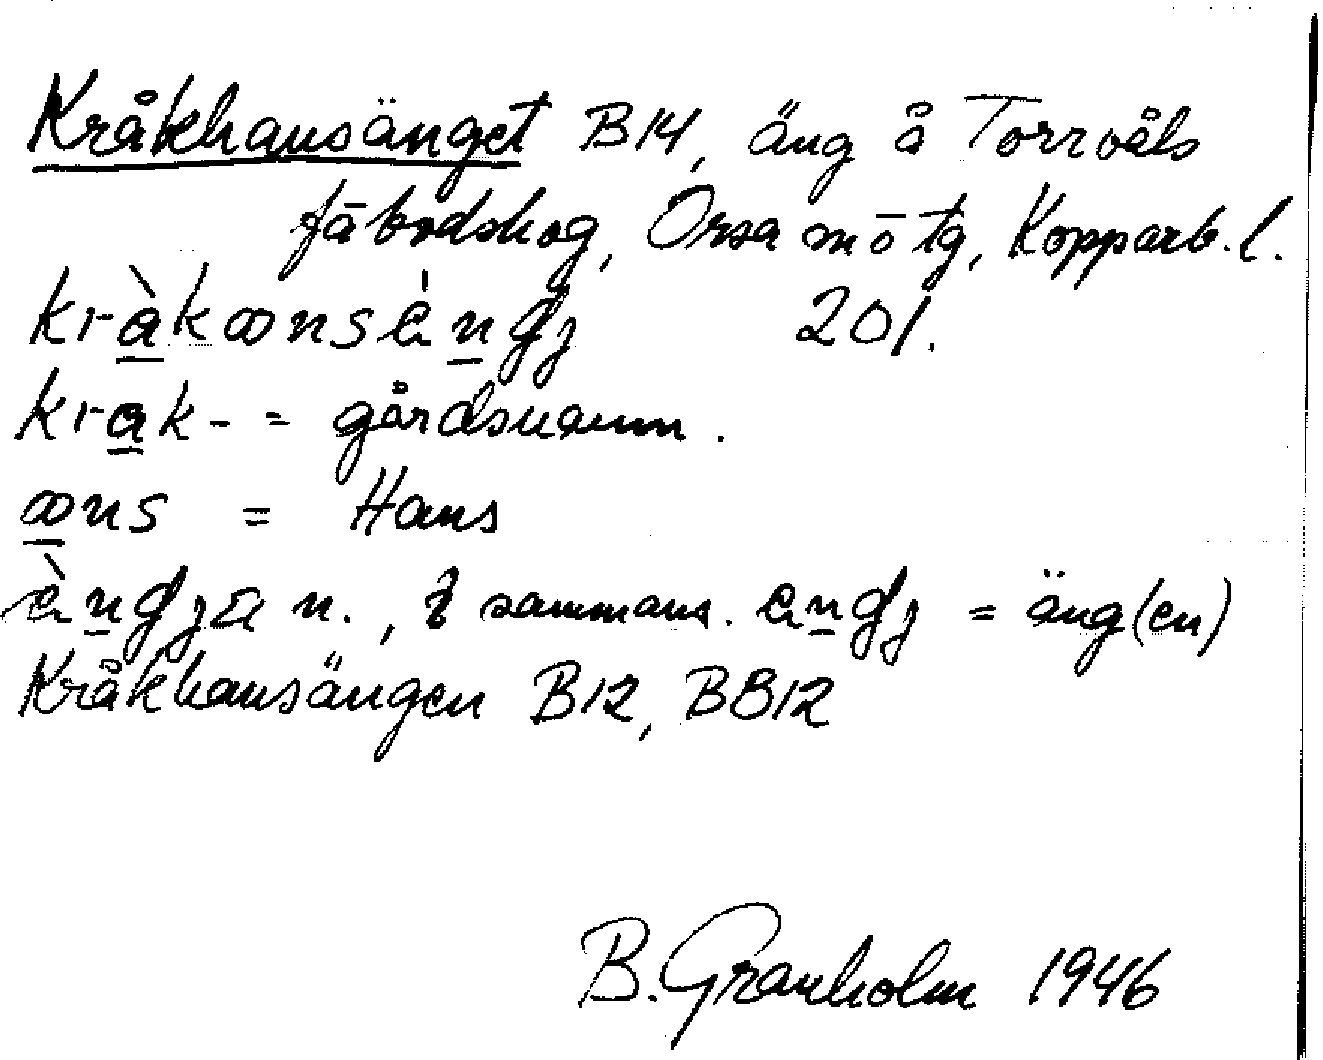 Kråkhansänget B14, äng å Torrvåls
fäbodskog, Orsa mō tg, Kopparb. l.
kràkωnsèngj 201.
krak- = gårdsnamn.
ωns = Hans
èngja n., i sammans. engj = äng(en)
Kråkhansängen B12, BB12
B. Granholm 1946